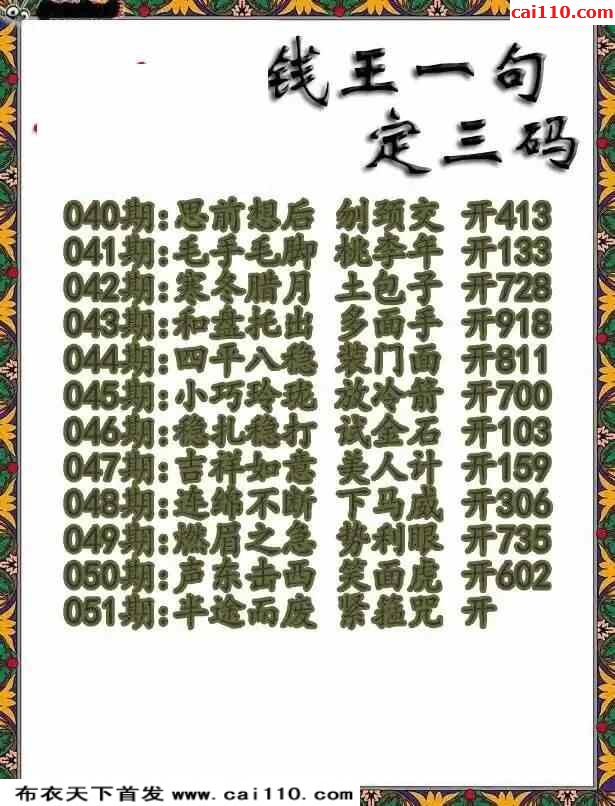 cai110.com
钱王一句
定三码
040期:思前想后 刎颈交 开413
041期:毛手毛脚 桃李年 开133
042期:寒冬腊月 土包子 开728
043期:和盘托出 多面手 开918
044期:四平八稳 装门面 开811
045期:小巧玲珑 放冷箭 开700
046期:稳扎稳打 试金石 开103
047期:吉祥如意 美人计 开159
048期:连绵不断 下马威 开306
049期:燃眉之急 势利眼 开735
050期:声东击西 笑面虎 开602
051期:半途而废 紧箍咒 开
布衣天下首发 www.cai110.com